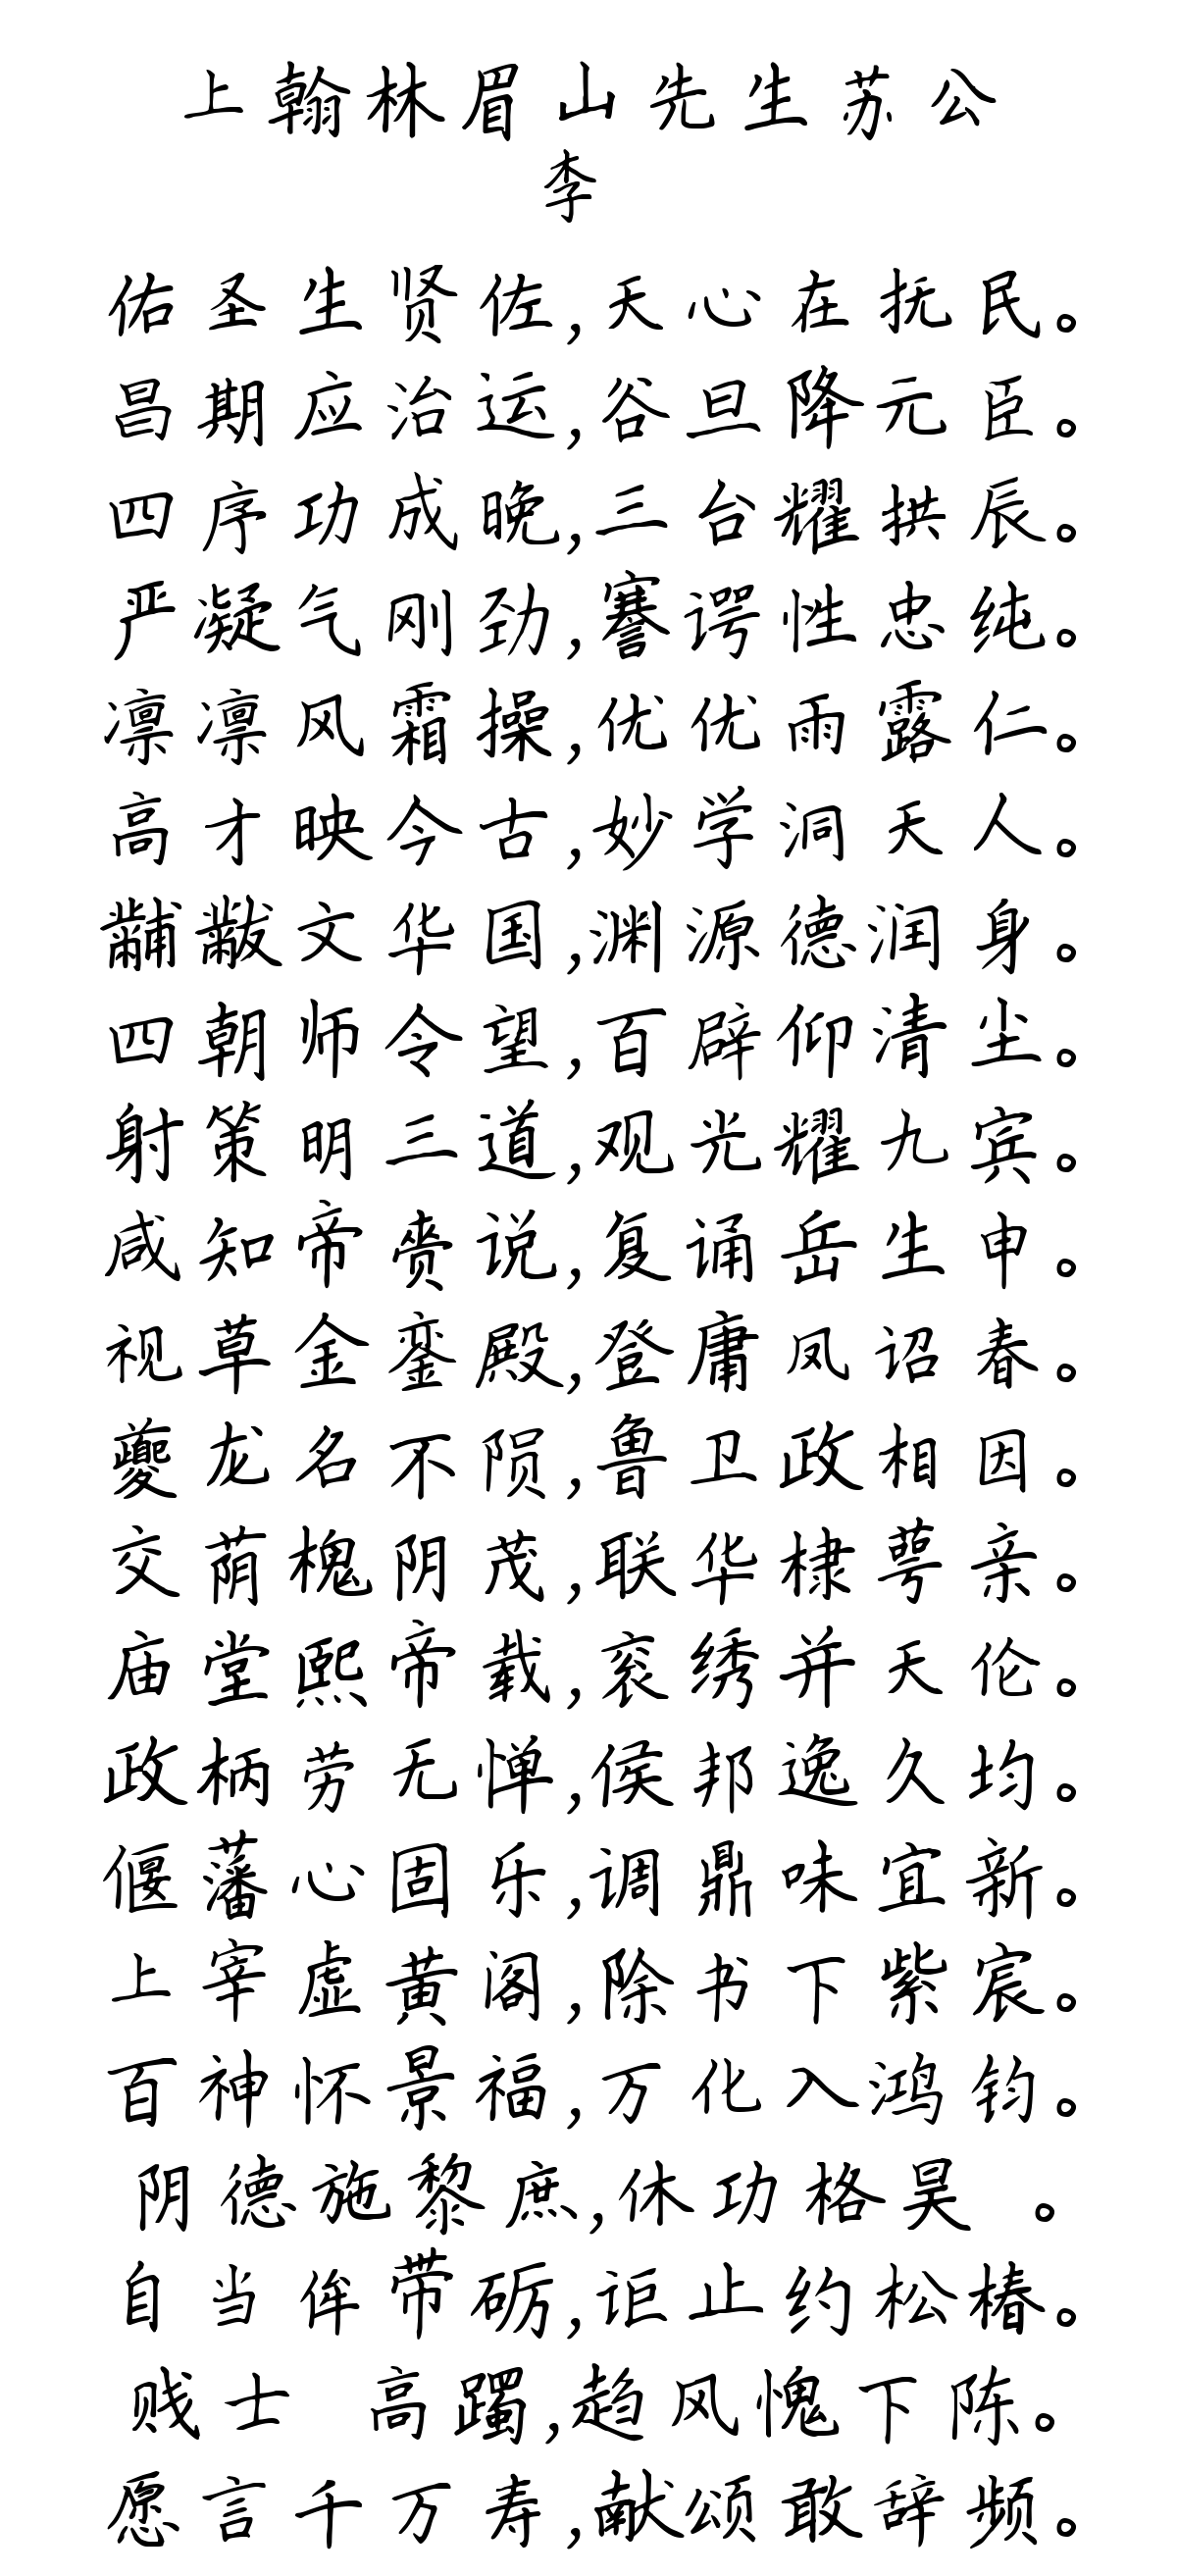 上翰林眉山先生苏公
李
佑圣生贤佐,天心在抚民。
昌期应治运,谷旦降元臣。
四序功成晚,三台耀拱辰。
严凝气刚劲,謇谔性忠纯。
凛凛风霜操,优优雨露仁。
高才映今古,妙学洞天人。
黼黻文华国,渊源德润身。
四朝师令望,百辟仰清尘。
射策明三道,观光耀九宾。
咸知帝赍说,复诵岳生申。
视草金銮殿,登庸凤诏春。
夔龙名不陨,鲁卫政相因。
交荫槐阴茂,联华棣萼亲。
庙堂熙帝载,衮绣并天伦。
政柄劳无惮,侯邦逸久均。
偃藩心固乐,调鼎味宜新。
上宰虚黄阁,除书下紫宸。
百神怀景福,万化入鸿钧。
阴德施黎庶,休功格昊 。
自当侔带砺,讵止约松椿。
贱士 高躅,趋风愧下陈。
愿言千万寿,献颂敢辞频。